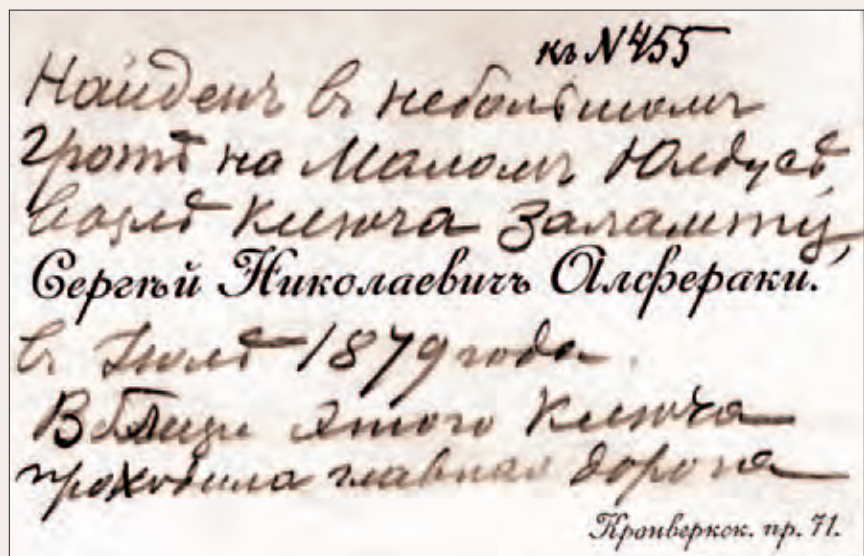 къ N 455
Найденъ въ небольшомъ
гротѣ на Маломъ Юлдусѣ
возлѣ ключа Заламты,
Сергѣй Николаевичъ Алфераки.
въ Іюлѣ 1879 года.
Вблизи этого ключа
проходила главная дорога
Кронверкск. пр. 71.